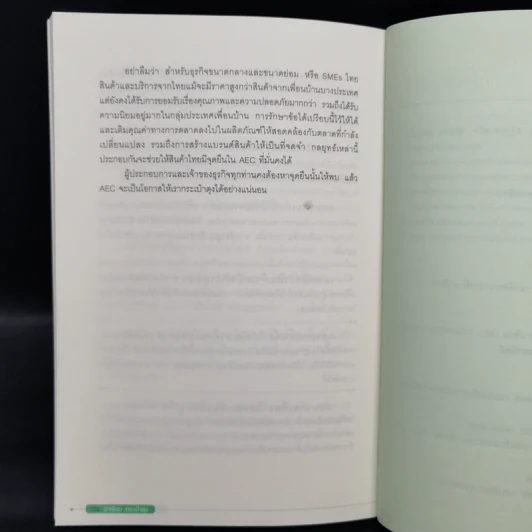 อย่าลืมว่า สำหรับธุรกิจขนาดกลางและขนาดย่อม หรือ SMEs ไทย
สินค้าและบริการจากไทยแม้จะมีราคาสูงกว่าสินค้าจากเพื่อนบ้านบางประเทศ
แต่ยังคงได้รับการยอมรับเรื่องคุณภาพและความปลอดภัยมากกว่า รวมถึงได้รับ
ความนิยมอยู่มากในกลุ่มประเทศเพื่อนบ้าน การรักษาข้อได้เปรียบนี้ไว้ให้ได้
และเติมคุณค่าทางการตลาดลงไปในผลิตภัณฑ์ให้สอดคล้องกับตลาดที่กำลัง
เปลี่ยนแปลง รวมถึงการสร้างแบรนด์สินค้าให้เป็นที่จดจำ กลยุทธ์เหล่านี้
ประกอบกันจะช่วยให้สินค้าไทยมีจุดยืนใน AEC ที่มั่นคงได้
ผู้ประกอบการและเจ้าของธุรกิจทุกท่านคงต้องหาจุดยืนนั้นให้พบ แล้ว
AEC จะเป็นโอกาสให้เรากระเป๋าตุงได้อย่างแน่นอน